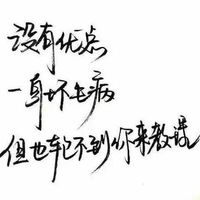 没有优点
一身坏毛病
但也轮不到你来教训